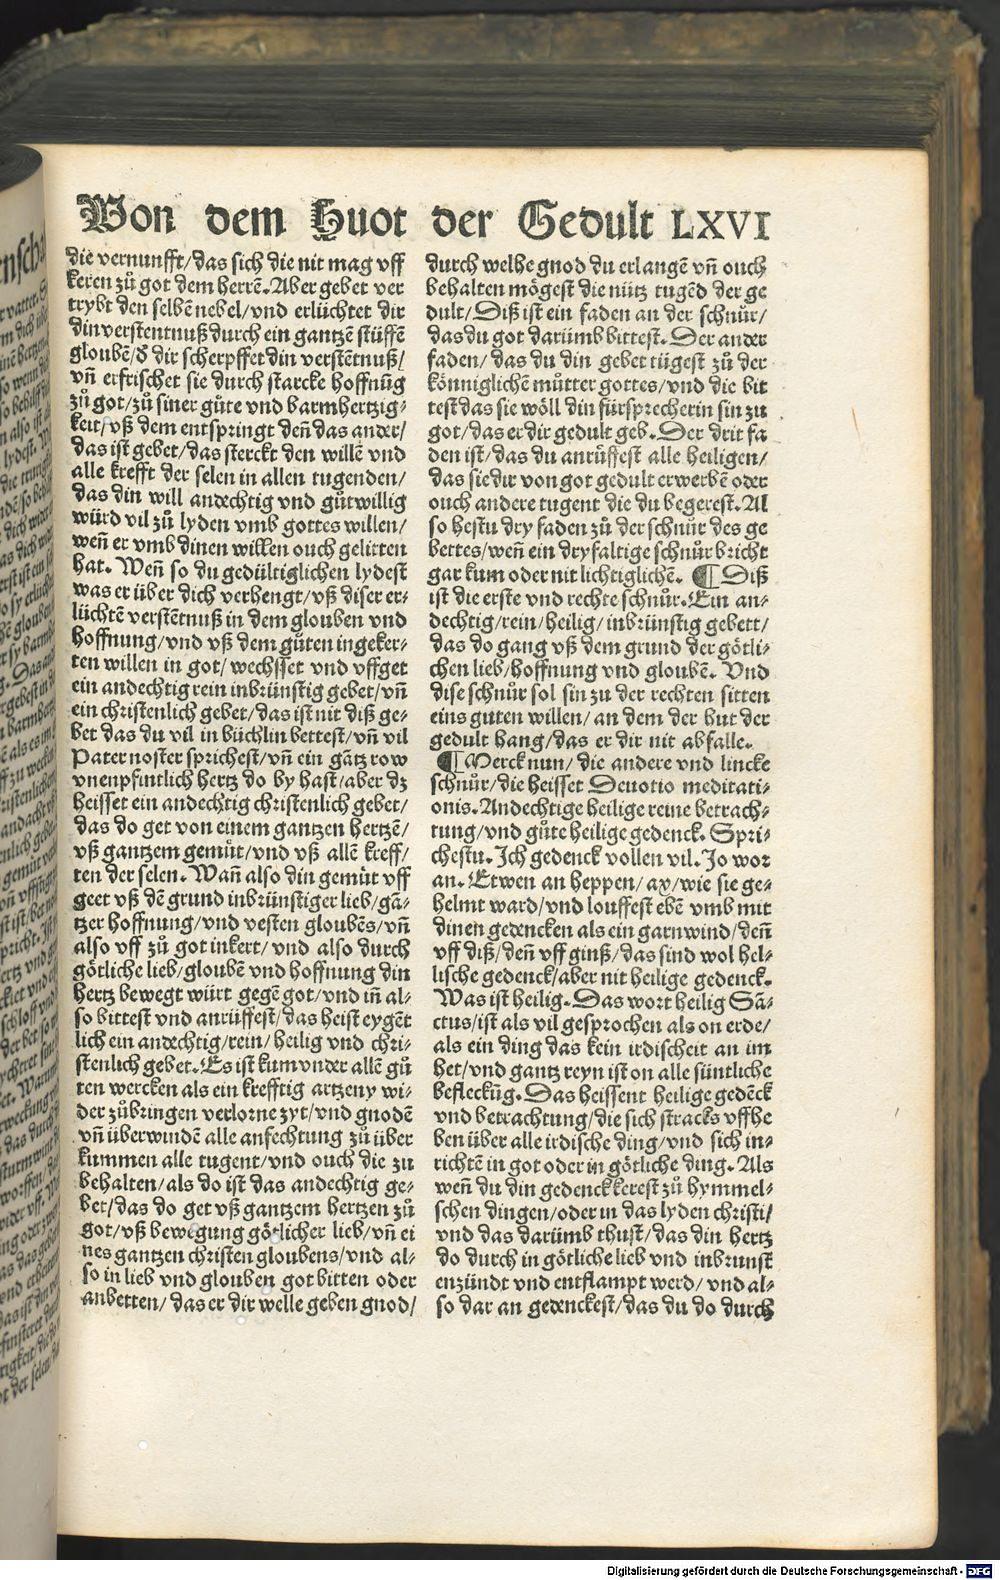 Von dem Huot der Gedult LXVI
die vernunfft/das sich die nit mag vff
keren zů got dem herrē. Aber gebet ver
trybt den selbē nebel/vnd erlüchtet dir
din verstentnuß durch ein gantzē stüffē
gloubē/ð dir scherpffet din verstētnuß/
vñ erfrischet sie durch starcke hoffnūg
zů got/zů siner gůte vnd barmhertzig⸗
keit/vß dem entspringt deñ das ander/
das ist gebet/das sterckt den willē vnd
alle krefft der selen in allen tugenden/
das din will andechtig vnd gůtwillig
würd vil zů lyden vmb gottes willen/
weñ er vmb dinen willen ouch gelitten
hat. Weñ so du gedültiglichen lydest
was er über dich verhengt/vß diser er⸗
lüchtē verstētnuß in dem glouben vnd
hoffnung/vnd vß dem gůten ingeker⸗
ten willen in got/wechsset vnd vffget
ein andechtig rein inbrünstig gebet/vñ
ein christenlich gebet/das ist nit diß ge⸗
bet das du vil in büchlin bettest/vñ vil
Pater noster sprichest/vñ ein gātz row
vnenpfintlich hertz do by hast/aber dz
heisset ein andechtig christenlich gebet/
das do get von einem gantzen hertzē/
vß gantzem gemüt/vnd vß allē kreff/
ten der selen. Wañ also din gemüt vff
geet vß dē grund inbrünstiger lieb/gā⸗
tzer hoffnung/vnd vesten gloubēs/vñ
also vff zů got inkert/vnd also durch
götliche lieb/gloubē vnd hoffnung din
hertz bewegt würt gegē got/vnd iñ al⸗
so bittest vnd anrüffest/das heist eygēt
lich ein andechtig/rein/heilig vnd chri⸗
stenlich gebet. Es ist kum vnder allē gů
ten wercken als ein krefftig artzeny wi⸗
der zůbringen verlorne zyt/vnd gnodē
vñ überwindē alle anfechtung zů über
kummen alle tugent/vnd ouch die zu
behalten/als do ist das andechtig ge⸗
bet/das do get vß gantzem hertzen zů
got/vß bewegung götlicher lieb/vñ ei
nes gantzen christen gloubens/vnd al⸗
so in lieb vnd glouben got bitten oder
anbetten/das er dir welle geben gnod/
durch welhe gnod du erlangē vñ ouch
behalten mögest die nütz tugēd der ge
dult/Diß ist ein faden an der schnůr/
das du got darūmb bittest. Der ander
faden/das du din gebet tügest zů der
könniglichē můtter gottes/vnd die bit
test das sie wöll din fürsprecherin sin zu
got/das er dir gedult geb. Der drit fa
den ist/das du anrüffest alle heiligen/
das sie dir von got gedult erwerbē oder
ouch andere tugent die du begerest. Al
so hestu dry faden zů der schnůr des ge
bettes/weñ ein dryfaltige schnůr bricht
gar kum oder nit lichtiglichē. ¶ Diß
ist die erste vnd rechte schnůr. Ein an⸗
dechtig/rein/heilig/inbrünstig gebett/
das do gang vß dem grund der götli⸗
chen lieb/hoffnung vnd gloubē. Vnd
dise schnůr sol sin zu der rechten sitten
eins guten willen/an dem der hut der
gedult hang/das er dir nit abfalle.
¶ Merck nun/die andere vnd lincke
schnůr/die heisset Deuotio meditati⸗
onis. Andechtige heilige reine betrach⸗
tung/vnd gůte heilige gedenck. Spri⸗
chestu. Ich gedenck vollen vil. Jo wor
an. Etwen an heppen/ax/wie sie ge⸗
helmt ward/vnd louffest ebē vmb mit
dinen gedencken als ein garnwind/deñ
vff diß/deñ vff ginß/das sind wol hel⸗
lische gedenck/aber nit heilige gedenck.
Was ist heilig. Das wort heilig Sā⸗
ctus/ist als vil gesprochen als on erde/
als ein ding das kein irdischeit an im
het/vnd gantz reyn ist on alle süntliche
befleckūg. Das heissent heilige gedēck
vnd betrachtung/die sich stracks vffhe
ben über alle irdische ding/vnd sich in⸗
richtē in got oder in götliche ding. Als
weñ du din gedenck kerest zů hymmel⸗
schen dingen/oder in das lyden christi/
vnd das darūmb thust/das din hertz
do durch in götliche lieb vnd inbrunst
enzündt vnd entflampt werd/vnd al⸗
so dar an gedenckest/das du do durch
Digitalisierung gefördert durch die Deutsche Forschungsgemeinschaft - DFG